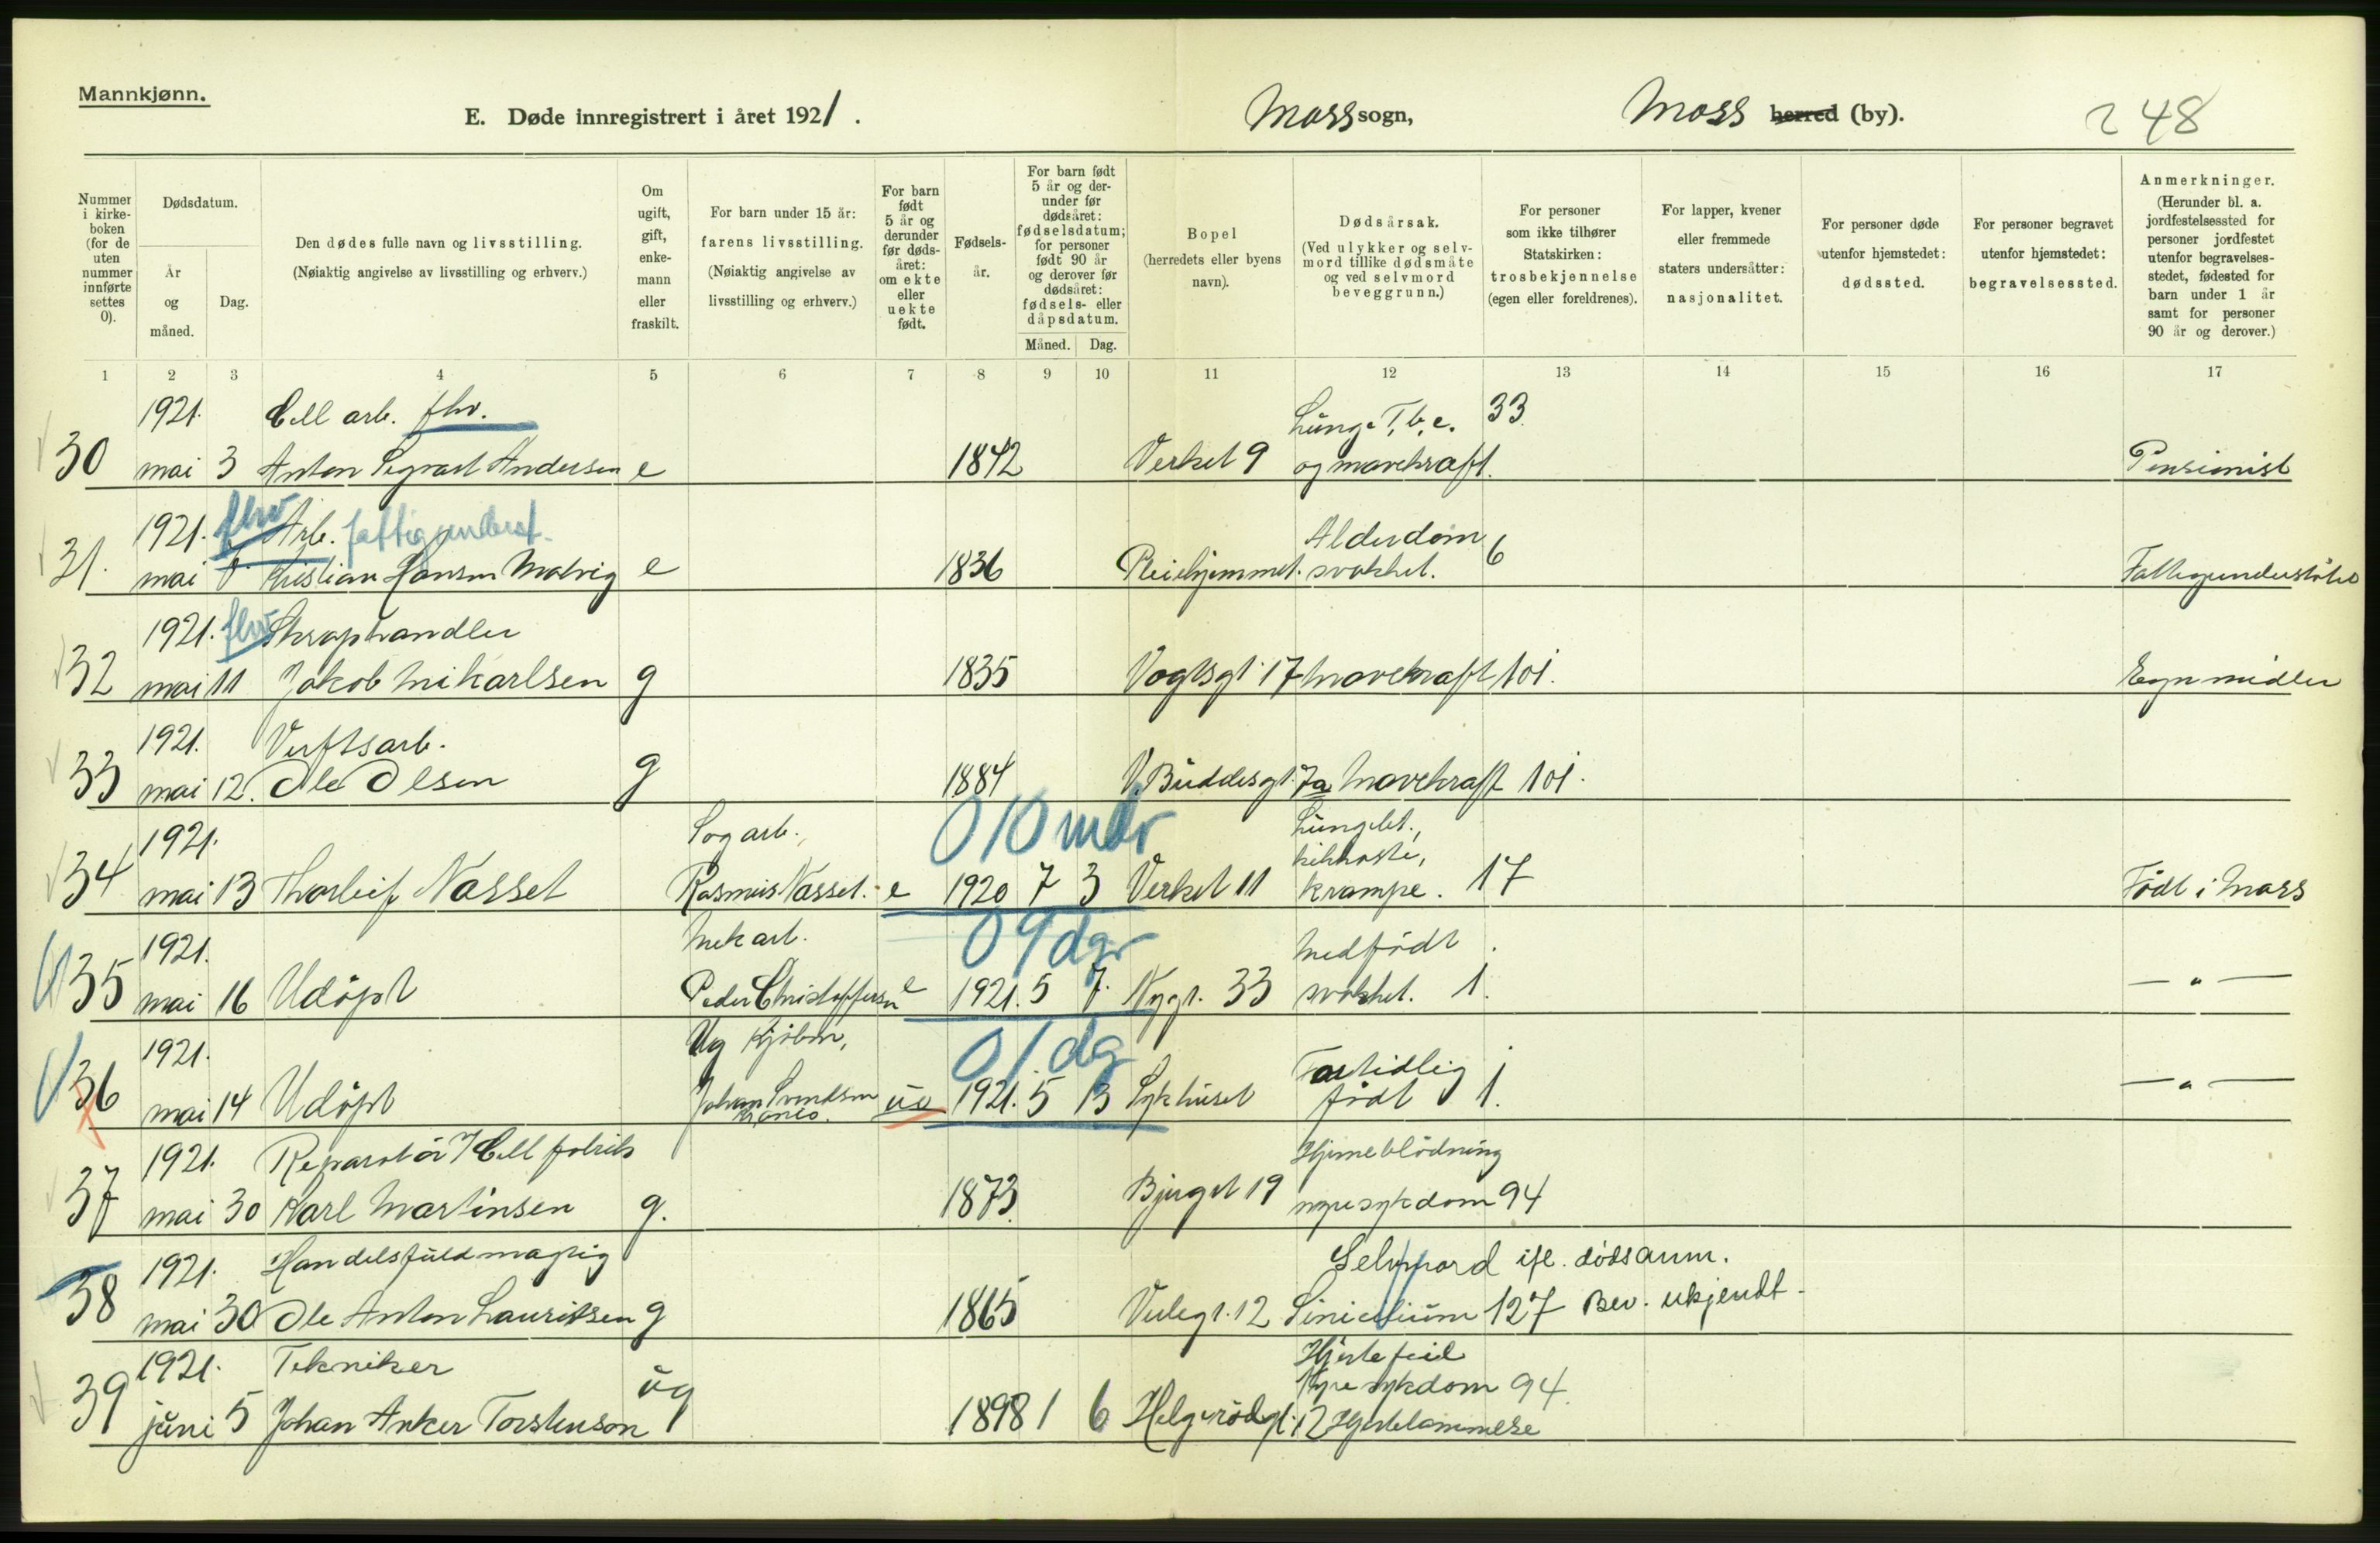 Mannkjønn.
E. Døde innregistrert i året 1921.
Moss sogn,
Moss herred (by).
248
Nummer i kirkeboken (for de uten nummer innførte settes 0).
Dødsdatum.
År og måned.
Dag.
Den dødes fulle navn og livsstilling.
(Nøiaktig angivelse av livsstilling og erhverv.)
Om ugift, gift, enkemann eller fraskilt.
For barn under 15 år:
farens livsstilling.
(Nøiaktig angivelse av livsstilling og erhverv.)
For barn født 5 år og derunder før dødsåret: om ekte eller uekte født.
Fødselsår.
For barn født 5 år og derunder før dødsåret: fødselsdatum; for personer født 90 år og derover før dødsåret: fødsels- eller dåpsdatum.
Måned. Dag.
Bopel
(herredets eller byens navn).
Dødsårsak.
(Ved ulykker og selvmord tillike dødsmåte og ved selvmord beveggrunn.)
For personer som ikke tilhører Statskirken: trosbekjennelse (egen eller foreldrenes).
For lapper, kvener eller fremmede staters undersåtter: nasjonalitet.
For personer døde utenfor hjemstedet: dødssted.
For personer begravet utenfor hjemstedet: begravelsessted.
Anmerkninger.
(Herunder bl. a. jordfestelsessted for personer jordfestet utenfor begravelsesstedet, fødested for barn under 1 år samt for personer 90 år og derover.)
1 2 3 4 5 6 7 8 9 10 11 12 13 14 15 16 17
1921. Cell arb. fhv. Lunge T.b.c. 33.
30 mai 3 Anton Andersen e 1842 Verket 9 og mavekraft. Pensionist
1921. fhv Arb. fattigunderst. Alderdom
31. mai Kristian Hansen Malvig e 1836 Pleiehjemmet. svakhet. 6 Fattigunderstöttet
1921. fhv Skraphandler
32 mai 11 Jakob Mikarlsen g 1835 Vogtsgt 17 Mavekraft 101. Egne midler
1921. Verftsarb.
33 mai 12. Ole Olsen g 1884 V. Buddesgt. 7a Mavekraft 101.
1921. Sagarb. 0 10 mdr Lungebet.,
kikhoste,
34 mai 13 Thorleif Nasset Rasmus Nasset. e 1920 7 3 Verket 11 krampe. 17 Födt i Moss
1921. Mek arb. 0 9 dgr Medfödt
35 mai 16 Udöpt Peder Christoffersen e 1921. 5 7. Nygt. 33 svakhet. 1. — " —
1921. Ug Kjöbm, 0 1 dg Fortidlig
36 mai 14 Udöpt Johan Svendsen ue 1921. 5 13 Sykhuset födt 1. — " —
1921. Reparatör Cell fabrik Hjerneblödning
37 mai 30 Karl Martinsen g. 1873 Bjerget 19 nyresykdom 94
1921. Handelsfuldmægtig Selvmord ifl. dödsanm.
38 mai 30 Ole Anton Lauritsen g 1865 Vulegt. 12 127 Bev. ukjendt.
1921. Tekniker Hjertefeil
ug Nyresykdom 94.
39 juni 5 Johan Anker Torstenson 1898 1 6 Helgerödgt. 12 Hjertelammelse